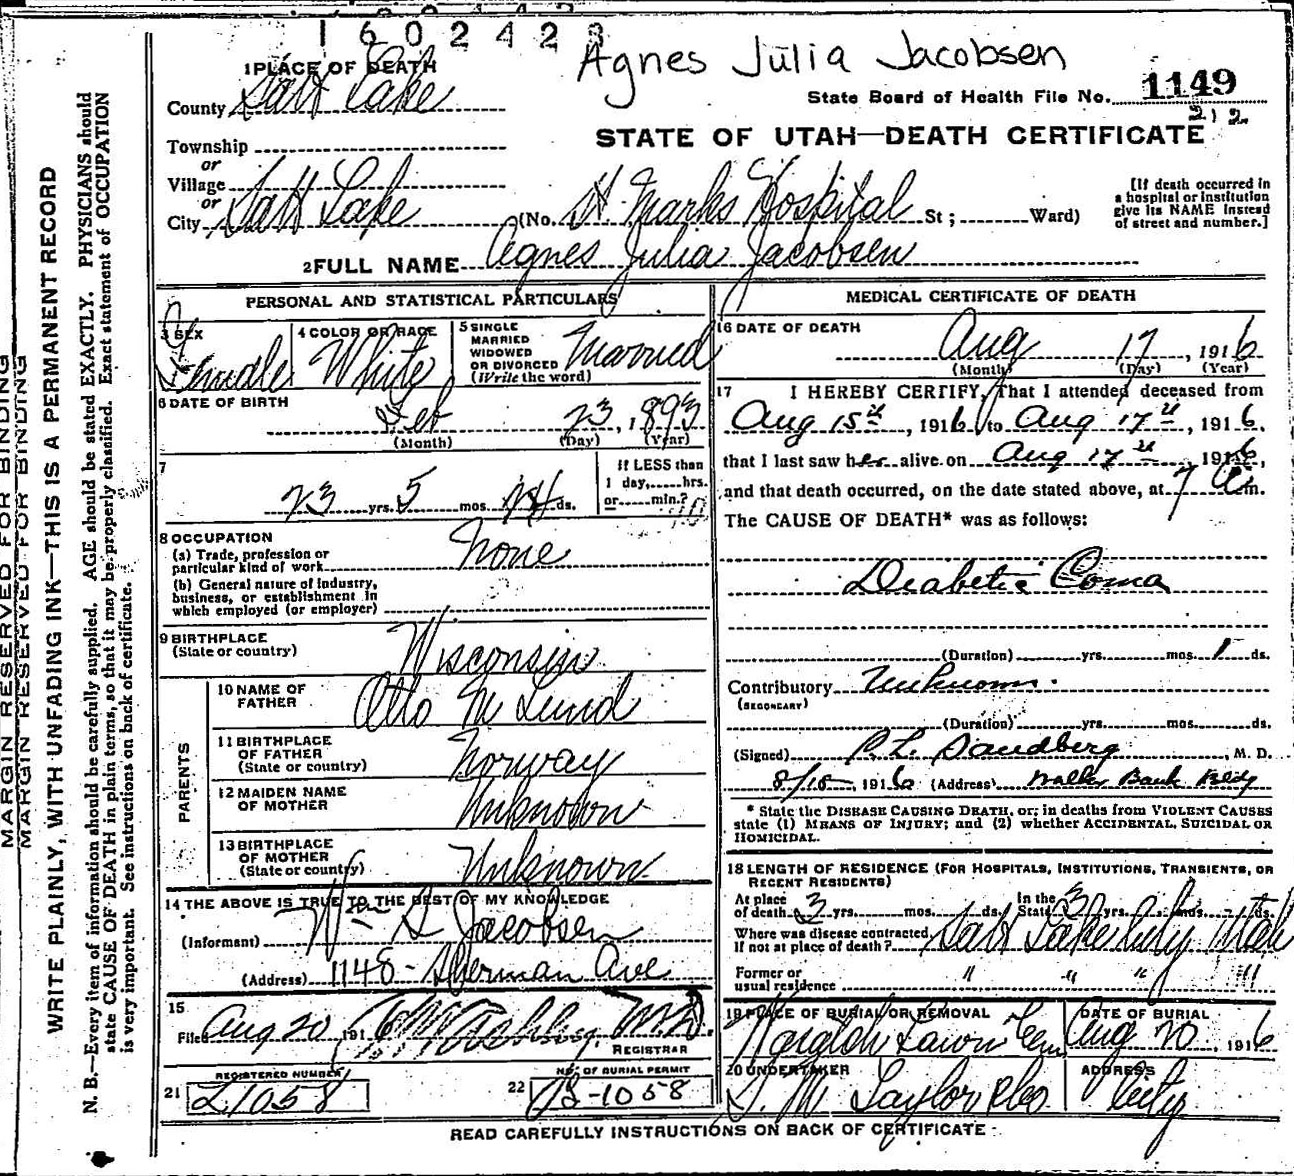 1602423
Agnes Julia Jacobsen
1 PLACE OF DEATH
County Salt Lake
State Board of Health File No. 1149
212
Township
or
Village Salt Lake
or
City Salt Lake (No. St. Marks Hospital St; Ward)
STATE OF UTAH—DEATH CERTIFICATE
[If death occurred in
a hospital or institution
give its NAME instead
of street and number.]
2 FULL NAME Agnes Julia Jacobsen
PERSONAL AND STATISTICAL PARTICULARS
3 SEX
Female
4 COLOR OR RACE
White
5 SINGLE
MARRIED
WIDOWED
OR DIVORCED
(Write the word)
Married
6 DATE OF BIRTH
Feb 23, 1893
(Month) (Day) (Year)
7
23 yrs. 5 mos. ds.
If LESS than
1 day, hrs.
or min.?
8 OCCUPATION
(a) Trade, profession or
particular kind of work None
(b) General nature of industry,
business, or establishment in
which employed (or employer)
9 BIRTHPLACE
(State or country) Wisconsin
PARENTS
10 NAME OF
FATHER Otto M Lund
11 BIRTHPLACE
OF FATHER
(State or country) Norway
12 MAIDEN NAME
OF MOTHER Unknown
13 BIRTHPLACE
OF MOTHER
(State or country) Unknown
14 THE ABOVE IS TRUE TO THE BEST OF MY KNOWLEDGE
(Informant) Wm S Jacobsen
(Address) 1148 Sherman Ave
15
Filed Aug 20 1916 Ashby M.D.
REGISTRAR
REGISTERED NUMBER
21 21058
NO. OF BURIAL PERMIT
22 B-1058
MEDICAL CERTIFICATE OF DEATH
16 DATE OF DEATH
Aug 17, 1916
(Month) (Day) (Year)
17 I HEREBY CERTIFY, That I attended deceased from
Aug 15th, 1916, to Aug 17th, 1916,
that I last saw her alive on Aug 17th 1916,
and that death occurred, on the date stated above, at 7 a m.
The CAUSE OF DEATH* was as follows:
Diabetic Coma
(Duration) yrs. mos. 1 ds.
Contributory Unknown.
(SECONDARY)
(Duration) yrs. mos. ds.
(Signed) P.L. Sandberg, M. D.
8/18 1916 (Address) Walker Bank Bldg
* State the DISEASE CAUSING DEATH, or; in deaths from VIOLENT CAUSES
state (1) MEANS OF INJURY; and (2) whether ACCIDENTAL, SUICIDAL OR
HOMICIDAL.
18 LENGTH OF RESIDENCE (FOR HOSPITALS, INSTITUTIONS, TRANSIENTS, OR
RECENT RESIDENTS)
At place
of death 3 yrs. mos. ds. In the
State 3 yrs. mos. ds.
Where was disease contracted,
If not at place of death? Salt Lake City Utah
Former or
usual residence " " " "
19 PLACE OF BURIAL OR REMOVAL
Lawn Cem
DATE OF BURIAL
Aug 20, 1916
20 UNDERTAKER
S. M. Taylor & Co
ADDRESS
City
READ CAREFULLY INSTRUCTIONS ON BACK OF CERTIFICATE
MARGIN RESERVED FOR BINDING
MARGIN RESERVED FOR BINDING
WRITE PLAINLY, WITH UNFADING INK—THIS IS A PERMANENT RECORD
N. B.—Every item of information should be carefully supplied. AGE should be stated EXACTLY. PHYSICIANS should
state CAUSE OF DEATH in plain terms, so that it may be properly classified. Exact statement of OCCUPATION
is very important. See instructions on back of certificate.